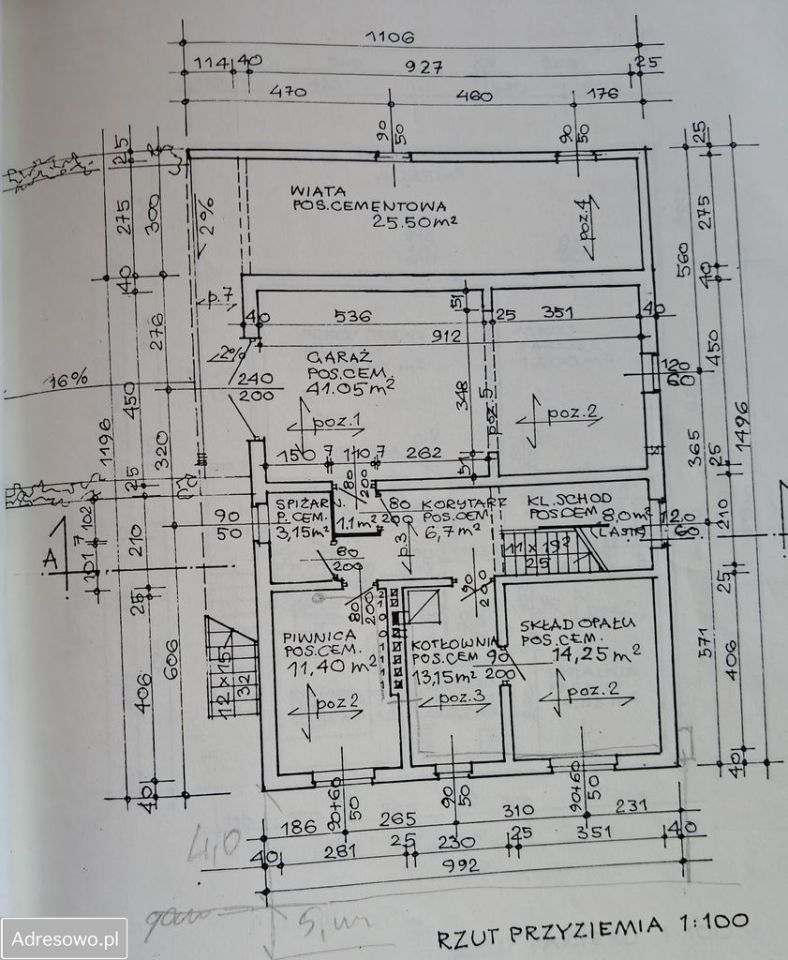 1106
114 40 927 25
470 460 176
90
50
90
50
25
275
300
40
276
450
320
1196
25
102
7
101
210
25
606
406
40
25
275
560
40
450
365
25
1496
210
25
571
406
40
2%
WIATA
POS.CEMENTOWA
25.50m²
poz.4
p.7
51
40 536 25 351 40
912
2%
GARAŻ
POS.CEM.
41.05m²
16%
240
200
120
60
348
poz.5
poz.1
poz.2
150 7 110 7 262
51
80
200
SPIŻARN.
P.CEM.
3,15m²
1.1m²
80
200
KORYTARZ
POS.CEM.
6,7m²
KL.SCHOD
POS.CEM 8,0m²
(LASTR)
90
50
120
60
p.3
A
80
200
11x19²
25
80
200
90
200
PIWNICA
POS.CEM.
11,40m²
KOTŁOWNIA
POS.CEM
13,15m²
90
200
SKŁAD OPAŁU
POS.CEM.
14,25m²
12x15
32
poz2
poz.3
poz.2
90+60
50
90
50
90+60
50
186 265 310 231
40 281 25 230 25 351 40
992
4,0
5,m
RZUT PRZYZIEMIA 1:100
Adresowo.pl